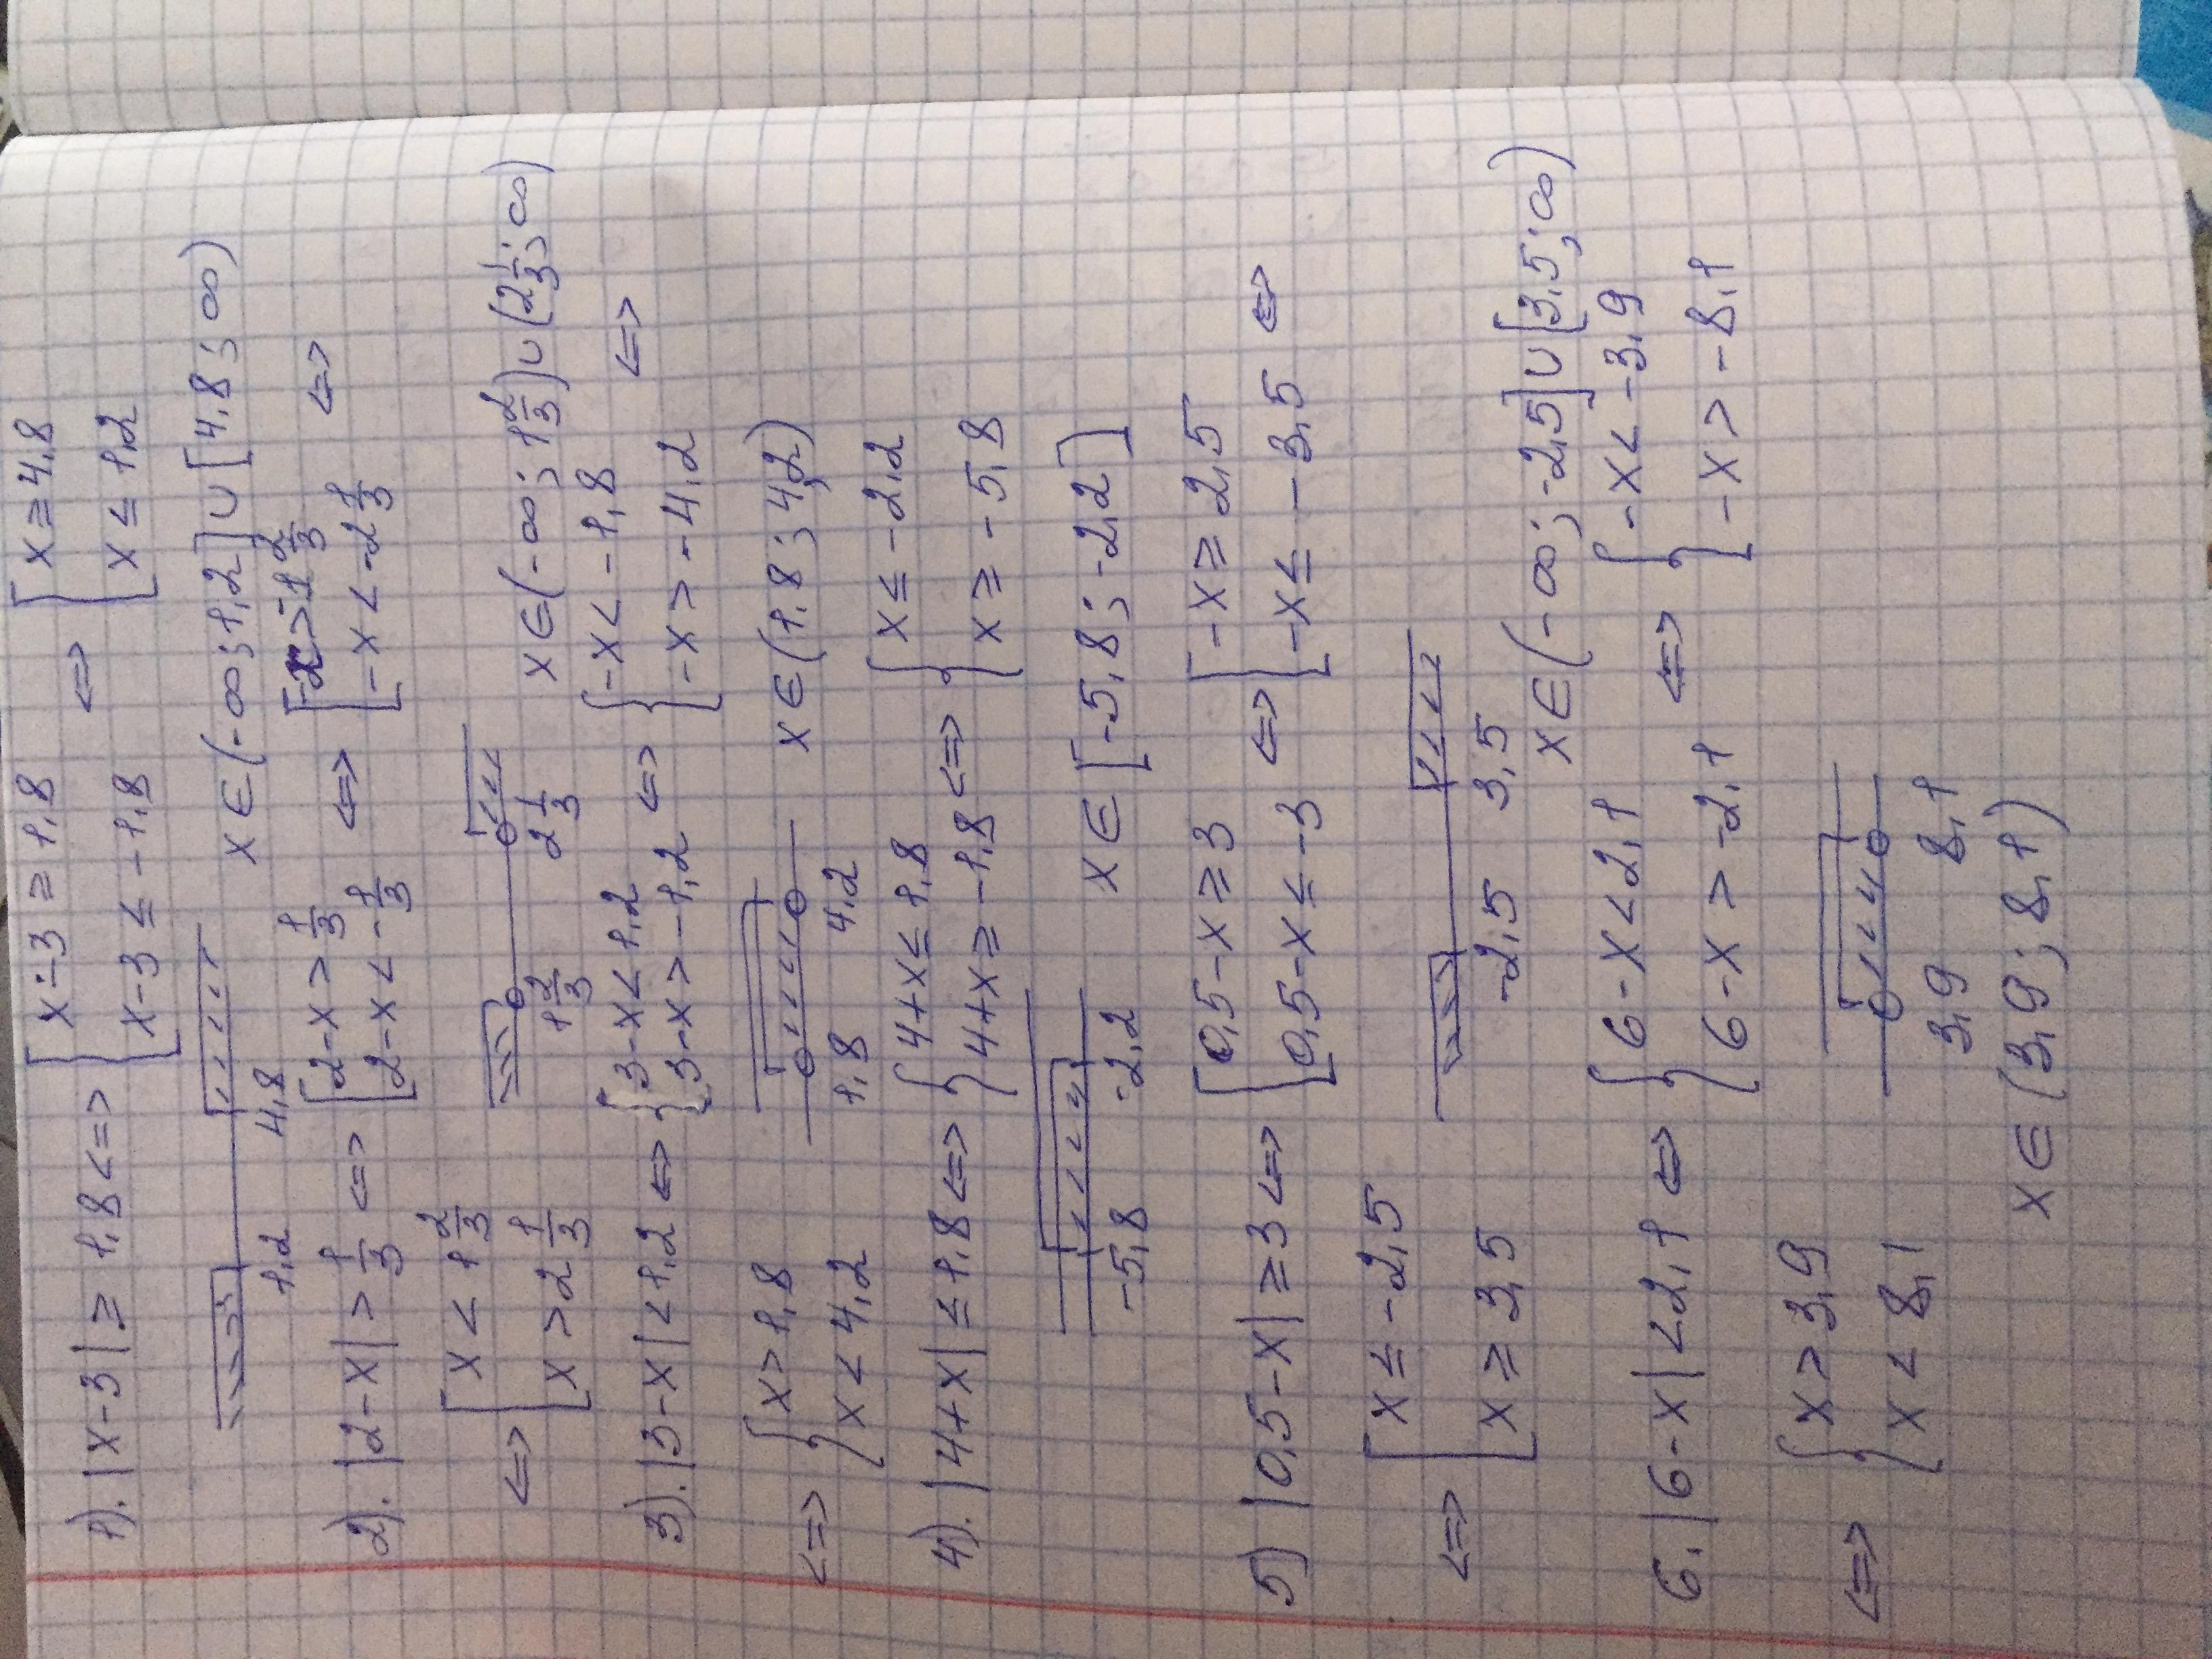 1). |x-3| ≥ 1,8 <=> [ x-3 ≥ 1,8 <=> [ x ≥ 4,8
x-3 ≤ -1,8 x ≤ 1,2
1,2 4,8 x ∈ (-∞; 1,2] ∪ [4,8; ∞)
2). |2-x| > 1/3 <=> [ 2-x > 1/3 <=> [ -x > -1 2/3 <=>
2-x < -1/3 -x < -2 1/3
<=> [ x < 1 2/3
x > 2 1/3 1 2/3 2 1/3 x ∈ (-∞; 1 2/3) ∪ (2 1/3; ∞)
3). |3-x| < 1,2 <=> { 3-x < 1,2 <=> { -x < -1,8 <=>
3-x > -1,2 -x > -4,2
<=> { x > 1,8
x < 4,2 1,8 4,2 x ∈ (1,8; 4,2)
4). |4+x| ≤ 1,8 <=> { 4+x ≤ 1,8 <=> { x ≤ -2,2
4+x ≥ -1,8 x ≥ -5,8
-5,8 -2,2 x ∈ [-5,8; -2,2]
5) |0,5-x| ≥ 3 <=> [ 0,5-x ≥ 3 <=> [ -x ≥ 2,5 <=>
0,5-x ≤ -3 -x ≤ -3,5
<=> [ x ≤ -2,5
x ≥ 3,5 -2,5 3,5 x ∈ (-∞; -2,5] ∪ [3,5; ∞)
6. |6-x| < 2,1 <=> { 6-x < 2,1 <=> { -x < -3,9
6-x > -2,1 -x > -8,1
<=> { x > 3,9
x < 8,1 3,9 8,1
x ∈ (3,9; 8,1)